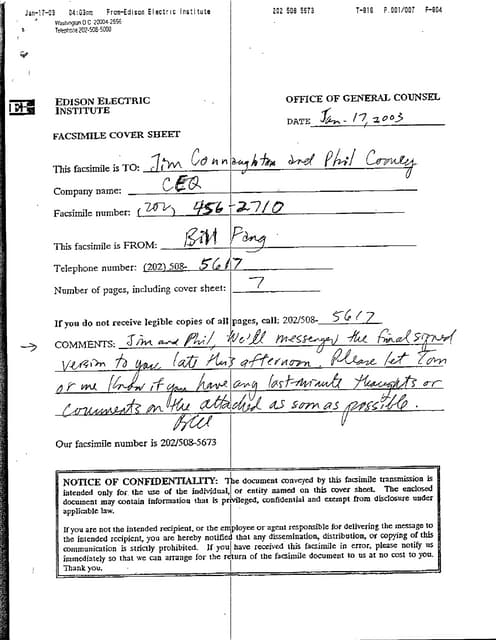 Jan-17-03 04:03pm From-Edison Electric Institute 202 508 5673 T-816 P.001/007 F-804
Washington D C 20004-2696
Telephone 202-508-5000
EEI
EDISON ELECTRIC
INSTITUTE
OFFICE OF GENERAL COUNSEL
DATE Jan. 17, 2003
FACSIMILE COVER SHEET
This facsimile is TO: Jim Connaughton and Phil Cooney
Company name: CEQ
Facsimile number: (202) 456-2710
This facsimile is FROM: Bill Fang
Telephone number: (202) 508- 5617
Number of pages, including cover sheet: 7
If you do not receive legible copies of all pages, call: 202/508- 5617
→ COMMENTS: Jim and Phil, We'll messenger the final signed
version to you late this afternoon. Please let Tom
or me know if you have any last-minute thoughts or
comments on the attached as soon as possible.
Bill
Our facsimile number is 202/508-5673
NOTICE OF CONFIDENTIALITY: The document conveyed by this facsimile transmission is
intended only for the use of the individual, or entity named on this cover sheet. The enclosed
document may contain information that is privileged, confidential and exempt from disclosure under
applicable law.
If you are not the intended recipient, or the employee or agent responsible for delivering the message to
the intended recipient, you are hereby notified that any dissemination, distribution, or copying of this
communication is strictly prohibited. If you have received this facsimile in error, please notify us
immediately so that we can arrange for the return of the facsimile document to us at no cost to you.
Thank you.